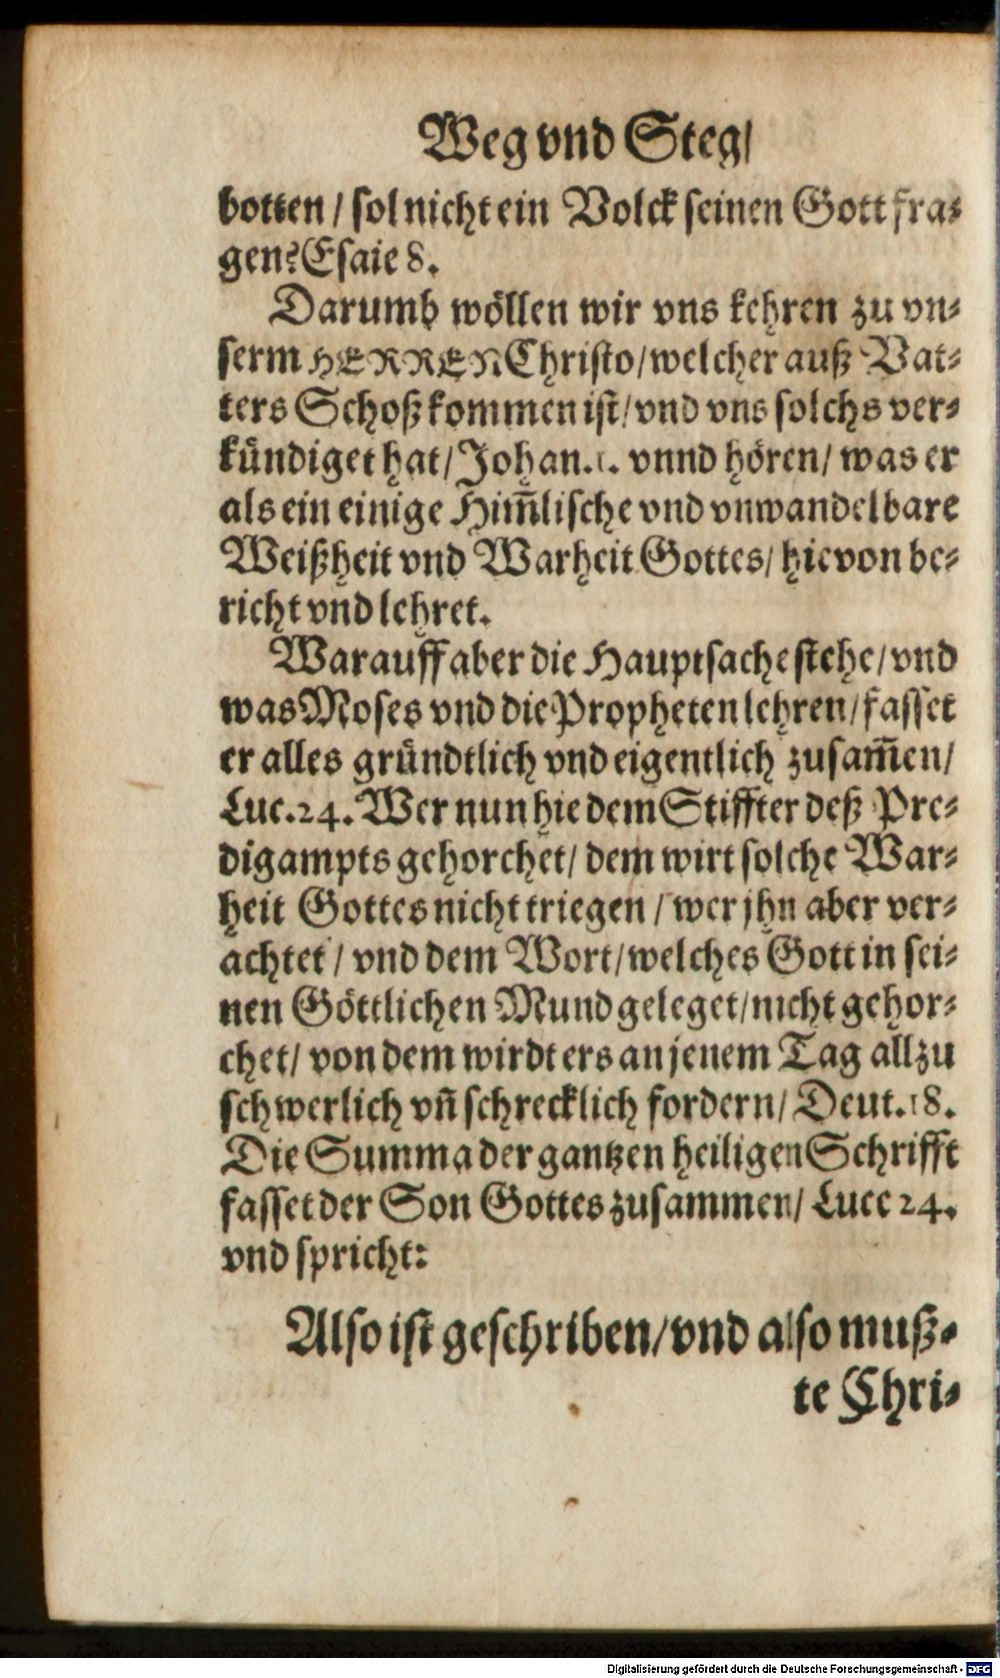 Weg vnd Steg/
botten / sol nicht ein Volck seinen Gott fra-
gen? Esaie 8.
Darumb wöllen wir vns kehren zu vn-
serm HERREN Christo / welcher auß Vat-
ters Schoß kommen ist / vnd vns solchs ver-
kündiget hat / Johan. 1. vnnd hören / was er
als ein einige Him̄lische vnd vnwandelbare
Weißheit vnd Warheit Gottes / hievon be-
richt vnd lehret.
Warauff aber die Hauptsache stehe / vnd
was Moses vnd die Propheten lehren / fasset
er alles gründtlich vnd eigentlich zusam̄en /
Luc. 24. Wer nun hie dem Stiffter deß Pre-
digampts gehorchet / dem wirt solche War-
heit Gottes nicht triegen / wer jhn aber ver-
achtet / vnd dem Wort / welches Gott in sei-
nen Göttlichen Mund geleget / nicht gehor-
chet / von dem wirdt ers an jenem Tag allzu
schwerlich vn̄ schrecklich fordern / Deut. 18.
Die Summa der gantzen heiligen Schrifft
fasset der Son Gottes zusammen / Luce 24.
vnd spricht:
Also ist geschriben / vnd also muß-
te Chri-
Digitalisierung gefördert durch die Deutsche Forschungsgemeinschaft - DFG